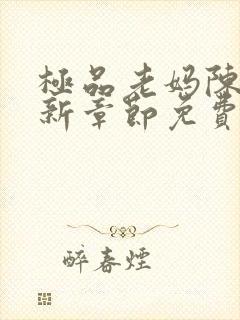 極品老媽陳
新章節免費
醉春煙